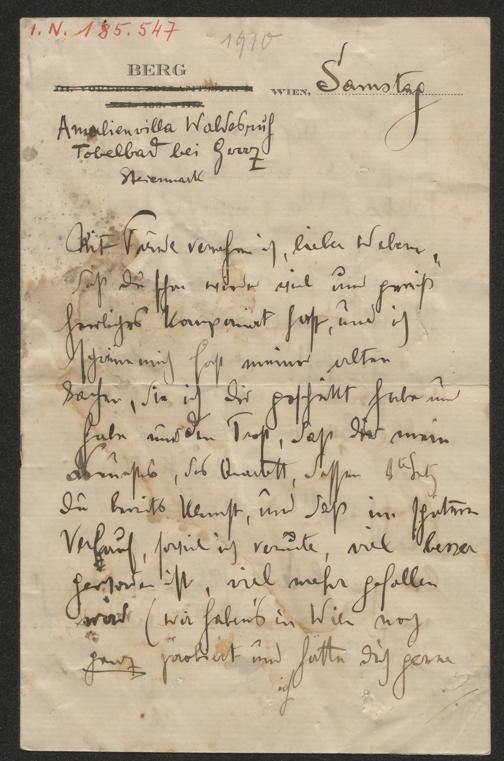 I. N. 185.547
1910
BERG
WIEN, Samstag
Amalienvilla Waldesruh
Tobelbad bei Graz
Steiermark
Mit Freude vernehm ich, lieber Webern,
daß du schon wieder viel und gewiß
herrliches komponiert hast, und ich
schäme mich fast meiner alten
Sachen, die ich dir geschickt habe und
habe nur den Trost, daß dir mein
Neuestes, das Quartett, dessen Satz
du bereits kennst, und daß im spätern
Verlauf, soviel ich vermute, viel besser
geworden ist, viel mehr gefallen
wird (wir haben's in Wien noch
ganz probiert und hätte dich gerne
ich